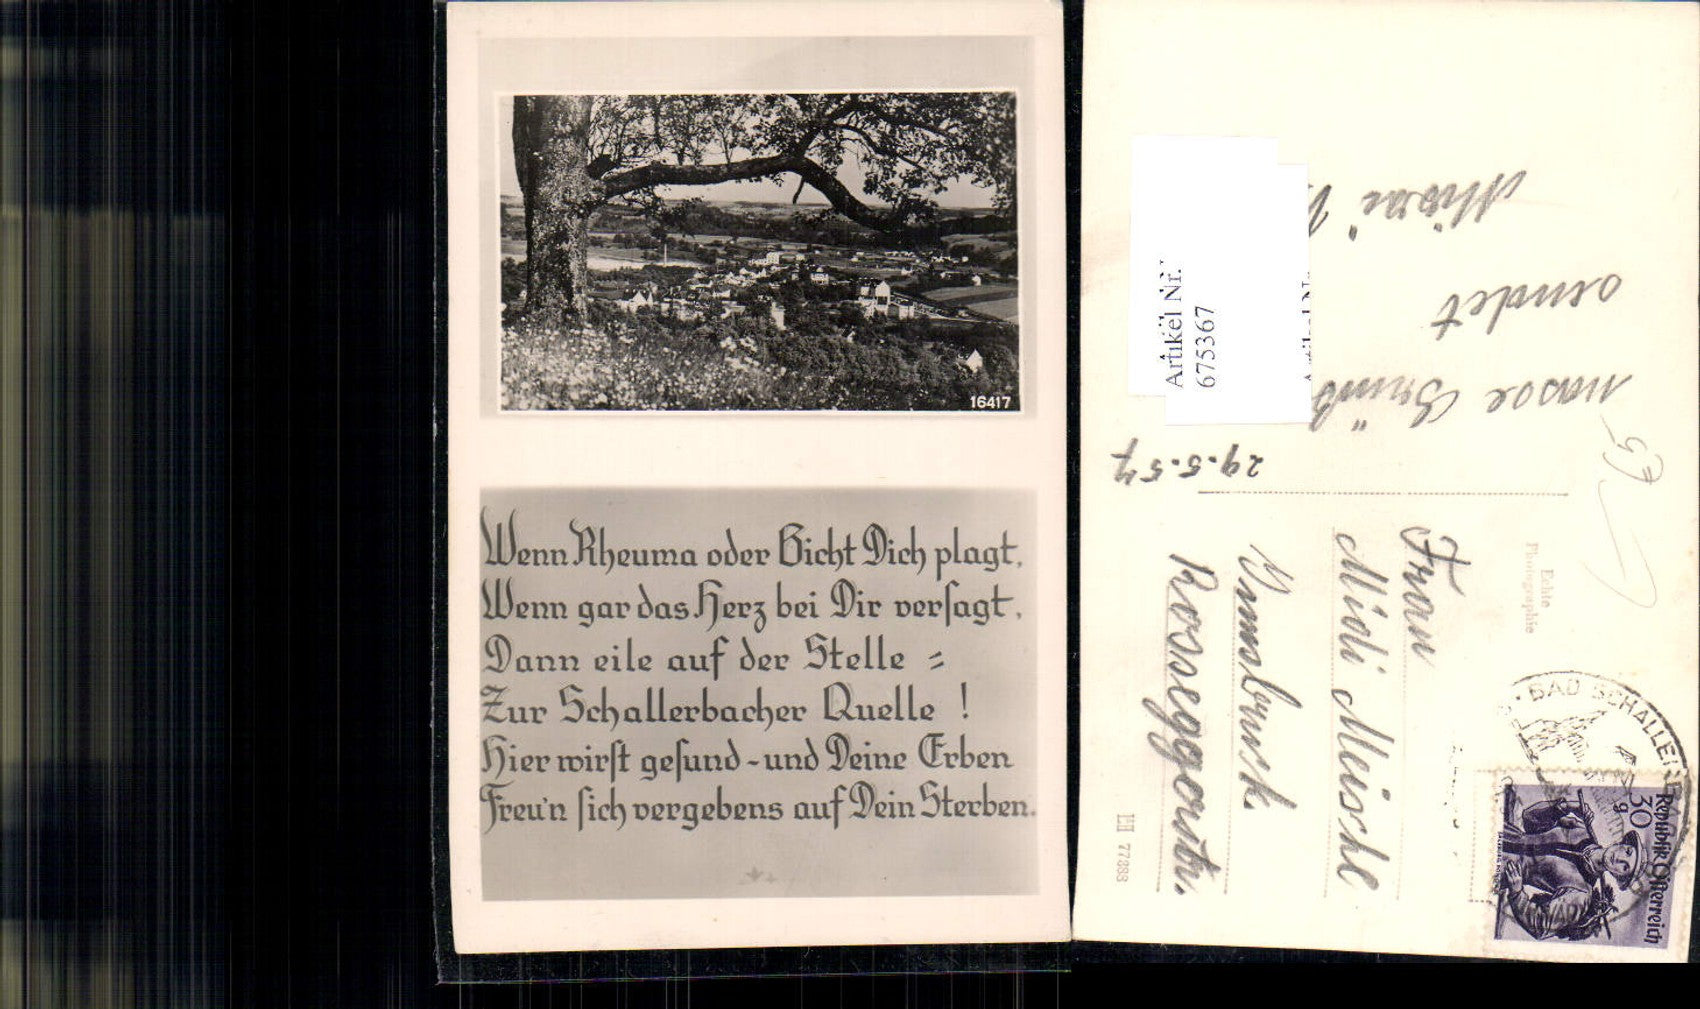 16417
Wenn Rheuma oder Gicht Dich plagt,
Wenn gar das Herz bei Dir versagt,
Dann eile auf der Stelle =
Zur Schallerbacher Quelle !
Hier wirst gesund - und Deine Erben
Freu'n sich vergebens auf Dein Sterben.
Artikel Nr.
675367
29.5.57
Echte
Photographie
Frau
Midi Meischl
Innsbruck
Roseggerstr.
BAD SCHALLER
30 g
Republik Österreich
77383